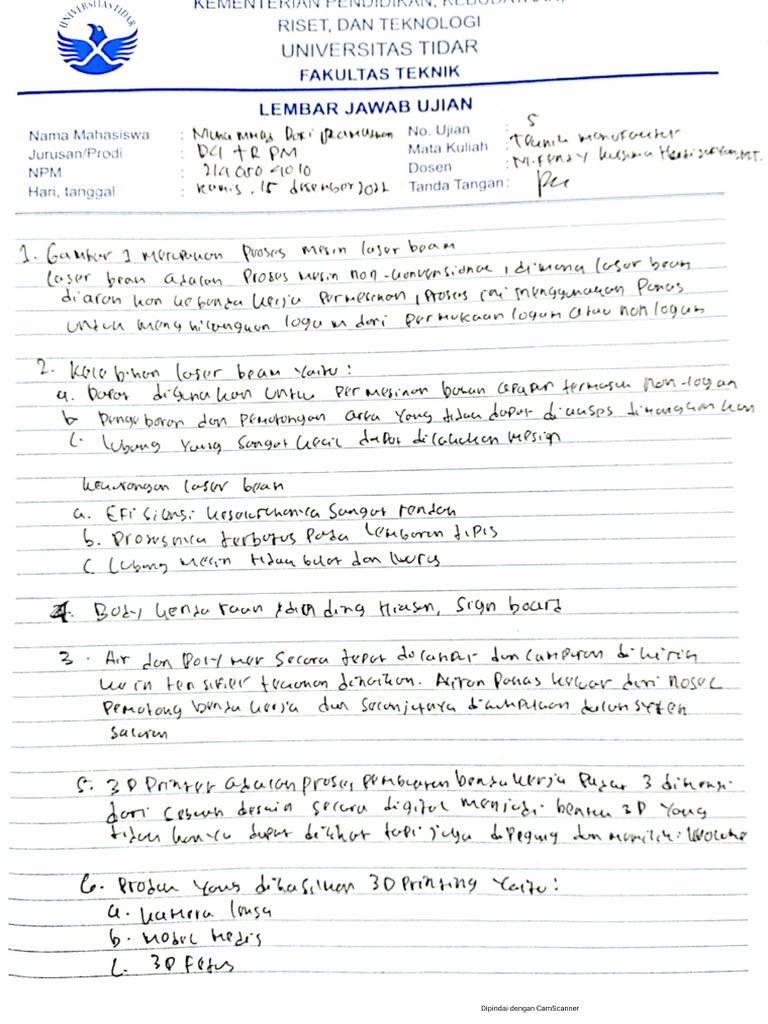 UNIVERSITAS TIDAR
KEMENTERIAN PENDIDIKAN, KEBUDAYAAN,
RISET, DAN TEKNOLOGI
UNIVERSITAS TIDAR
FAKULTAS TEKNIK
LEMBAR JAWAB UJIAN
Nama Mahasiswa : Dori
No. Ujian : 5
Jurusan/Prodi :
Mata Kuliah : Teknik manufaktur
NPM :
Dosen : M. Fendy Kusuma
Hari, tanggal : Kamis, 15 desember 2022
Tanda Tangan :
1. Gambar 1 merupakan proses mesin laser beam
laser beam adalah proses mesin non-konvensional, dimana laser beam
diarahkan ke benda kerja permesinan, proses ini menggunakan panas
untuk menghilangkan logam dari permukaan logam atau non logam
2. Kelebihan laser beam yaitu :
a. Dapat digunakan untuk permesinan bahan apapun termasuk non-logam
b Pengeboran dan pemotongan area yang tidak dapat diakses dimungkinkan
c. lubang yang sangat kecil dapat dilakukan
kekurangan laser beam
a. Efisiensi keseluruhannya sangat rendah
b. Prosesnya terbatas pada lembaran tipis
c lubang mesin tidak bulat dan lurus
4. Body kendaraan, dinding hiasan, sign board
3. Air dan polymer secara tepat dicampur dan campuran dikirim
ke intensifier tekanan dinaikan. Aliran panas keluar dari nosel
pemotong benda kerja dan selanjutnya dikumpulkan dalam sistem
saluran
5. 3D Printer adalah proses pembuatan benda kerja padat 3 dimensi
dari sebuah desain secara digital menjadi bentuk 3D yang
tidak hanya dapat dilihat tapi juga dipegang dan memiliki volume
6. Produk yang dihasilkan 3D Printing yaitu :
a. kamera lensa
b. model medis
c. 3D Fetus
Dipindai dengan CamScanner